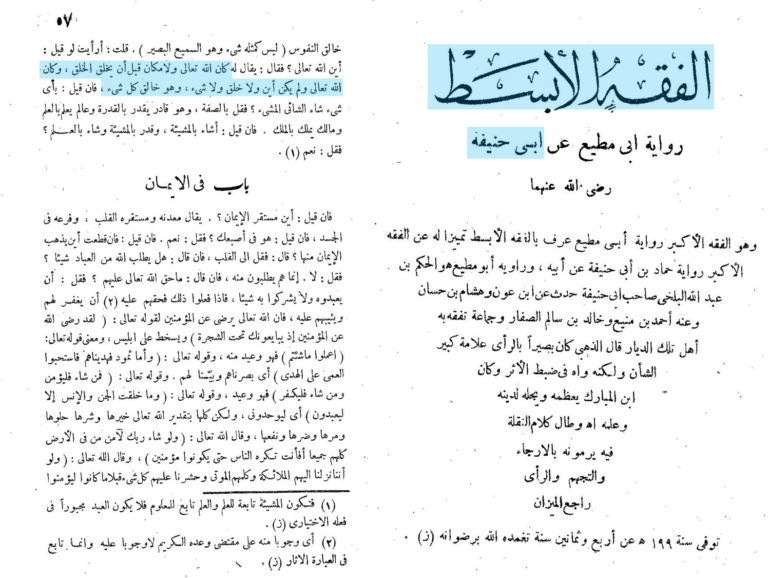 الفقه الأبسط
رواية ابى مطيع عن ابى حنيفة
رضى الله عنهما
وهو الفقه الأكبر رواية أبى مطيع عرف بالفقه الأبسط تمييزا له عن الفقه
الأكبر رواية حماد بن أبي حنيفة عن أبيه ، وراويه أبو مطيع هو الحكم بن
عبد الله البلخى صاحب ابى حنيفة حدث عن ابن عون وهشام بن حسان
وعنه أحمد بن منيع وخالد بن سالم الصفار وجماعة تفقه به
أهل تلك الديار قال الذهبى كان بصيراً بالرأى علامة كبير
الشأن ولكنه واه فى ضبط الأثر وكان
ابن المبارك يعظمه ويجله لدينه
وعلمه اه وطال كلام النقلة
فيه يرمونه بالارجاء
والتجهم والرأى
راجع الميزان
توفى سنة ١٩٩ ه عن أربع وثمانين سنة تغمده الله برضوانه (ز) .
٥٧
خالق النفوس ( ليس كمثله شىء وهو السميع البصير ) . قلت : أرأيت لو قيل :
أين الله تعالى ؟ فقال : يقال له كان الله تعالى ولا مكان قبل أن يخلق الخلق ، وكان
الله تعالى ولم يكن أين ولا خلق ولا شىء ، وهو خالق كل شىء ، فان قيل : بأى
شىء شاء الشائى المشىء ؟ فقل بالصفة ، وهو قادر يقدر بالقدرة وعالم يعلم بالعلم
ومالك يملك بالملك . فان قيل : أشاء بالمشيئة ، وقدر بالمشيئة وشاء بالعلم ؟
فقل : نعم (١) .
باب فى الايمان
فان قيل : أين مستقر الإيمان ؟ . يقال معدنه ومستقره القلب ، وفرعه فى
الجسد ، فان قيل : هو فى أصبعك ؟ فقل : نعم . فان قيل : فان قطعت أين يذهب
الإيمان منها ؟ قال : فقل الى القلب ، فان قال : هل يطلب الله من العباد شيئا ؟
فقل : لا . إنما هم يطلبون منه ، فان قال : ماحق الله تعالى عليهم ؟ فقل : أن
يعبدوه ولا يشركوا به شيئا ، فاذا فعلوا ذلك فحقهم عليه (٢) أن يغفر لهم
ويثيبهم عليه ، فان الله تعالى يرضى عن المؤمنين لقوله تعالى : ( لقد رضى الله
عن المؤمنين إذ يبايعونك تحت الشجرة ) ويسخط على ابليس ، ومعنى قوله تعالى :
( اعملوا ماشئتم ) فهو وعيد منه ، وقوله تعالى : ( وأما ثمود فهديناهم فاستحبوا
العمى على الهدى ) أى بصرناهم وبينا لهم . وقوله تعالى : ( فمن شاء فليؤمن
ومن شاء فليكفر ) فهو وعيد ، وقوله تعالى : ( وما خلقت الجن والإنس إلا
ليعبدون ) أى ليوحدونى ، ولكن كلها بتقدير الله تعالى خيرها وشرها حلوها
ومرها وضرها ونفعها ، وقال الله تعالى : ( ولو شاء ربك لآمن من فى الأرض
كلهم جميعا أفأنت تكره الناس حتى يكونوا مؤمنين ) ، وقال الله تعالى : ( ولو
أننا نزلنا اليهم الملائكة وكلهم الموتى وحشرنا عليهم كل شىء قبلا ما كانوا ليؤمنوا
(١) فتكون المشيئة تابعة للعلم والعلم تابع للمعلوم فلا يكون العبد مجبوراً فى
فعله الاختيارى (ز) .
(٢) أى وجوبا منه على مقتضى وعده الكريم لا وجوبا عليه وانما تابع
فى العبارة الاثار (ز) .